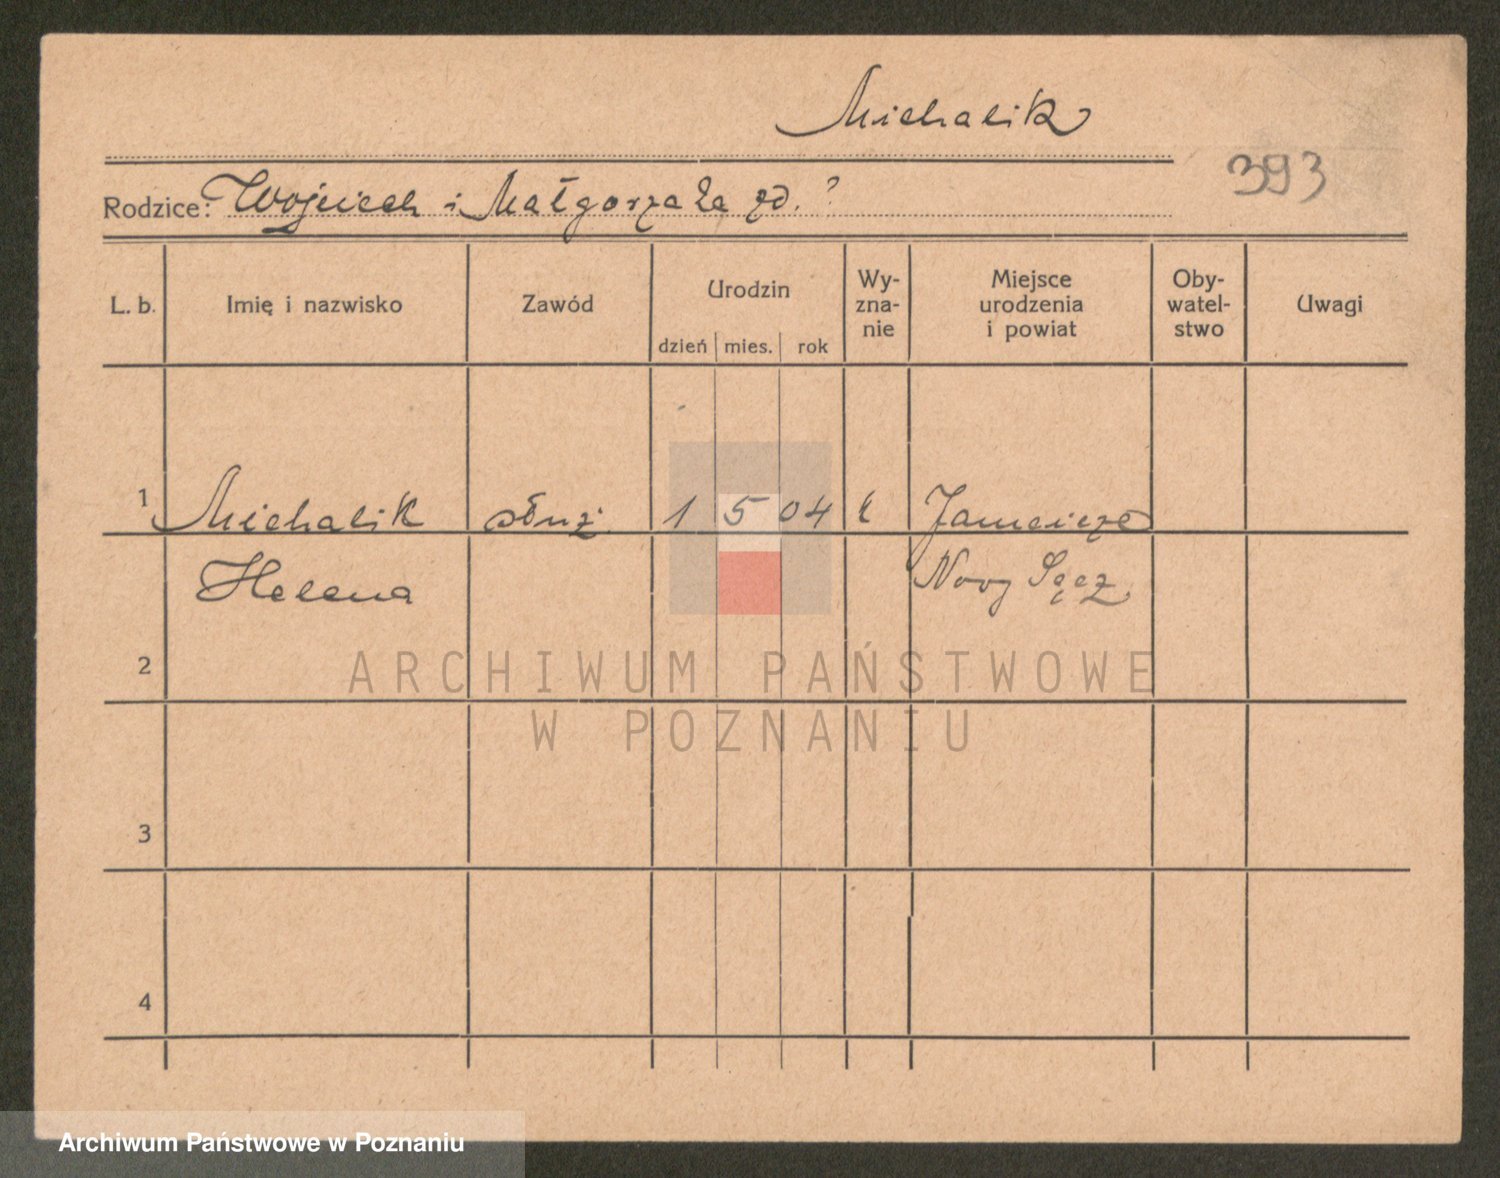 Michalik
393
Rodzice: Wojciech i Małgorzata zd. ?
L. b. Imię i nazwisko Zawód Urodzin dzień mies. rok Wy-zna-nie Miejsce urodzenia i powiat Oby-watel-stwo Uwagi
1 Michalik służ. 1 5 04
Helena Nowy Sącz
2
ARCHIWUM PAŃSTWOWE
W POZNANIU
3
4
Archiwum Państwowe w Poznaniu